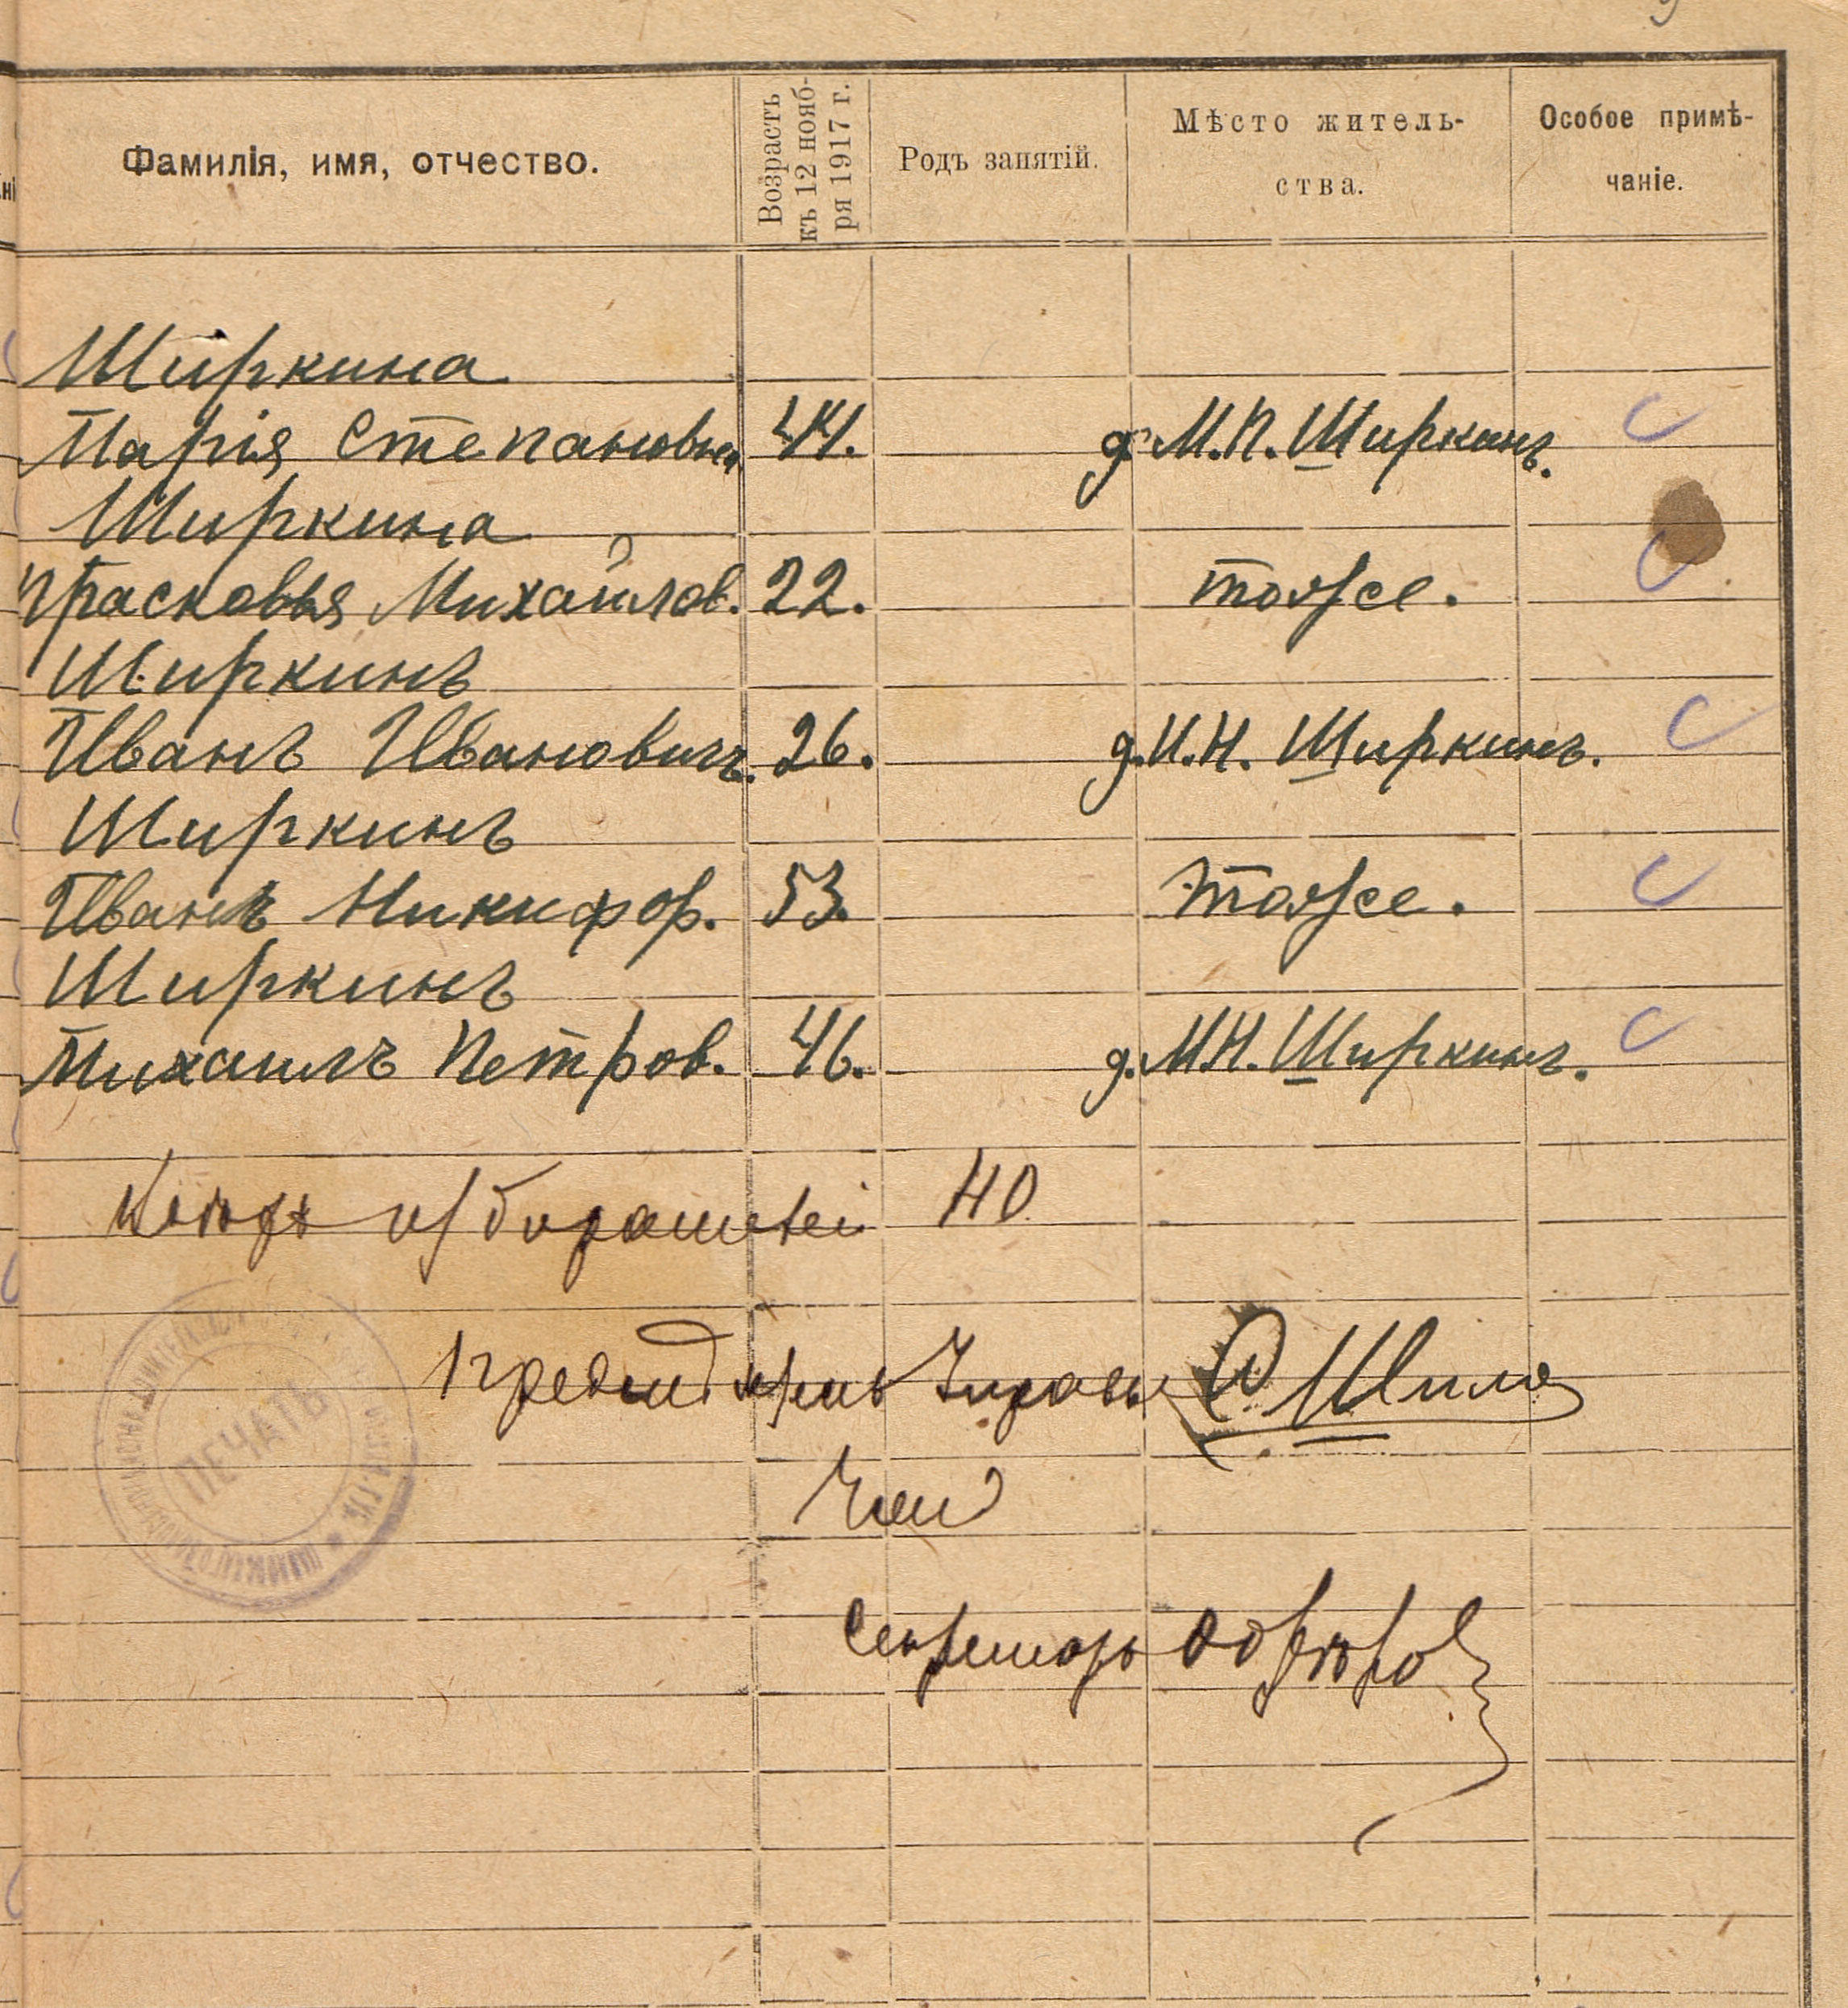 Фамилія, имя, отчество.
Возрастъ къ 12 нояб-
ря 1917 г.
Родъ занятій.
Мѣсто житель-
ства.
Особое примѣ-
чаніе.
Ширкина
Марія Степановна 44. д. М.П. Ширкинъ.
Ширкина
Прасковья Михайлов. 22. тоже.
Ширкинъ
Иванъ Ивановичъ. 26. д. И.Н. Ширкинъ.
Ширкинъ
Иванъ Никифор. 53. тоже.
Ширкинъ
Михаилъ Петров. 46. д. М.Н. Ширкинъ.
избирателей 40
Председатель Управы
Секретарь
ПЕЧАТЬ